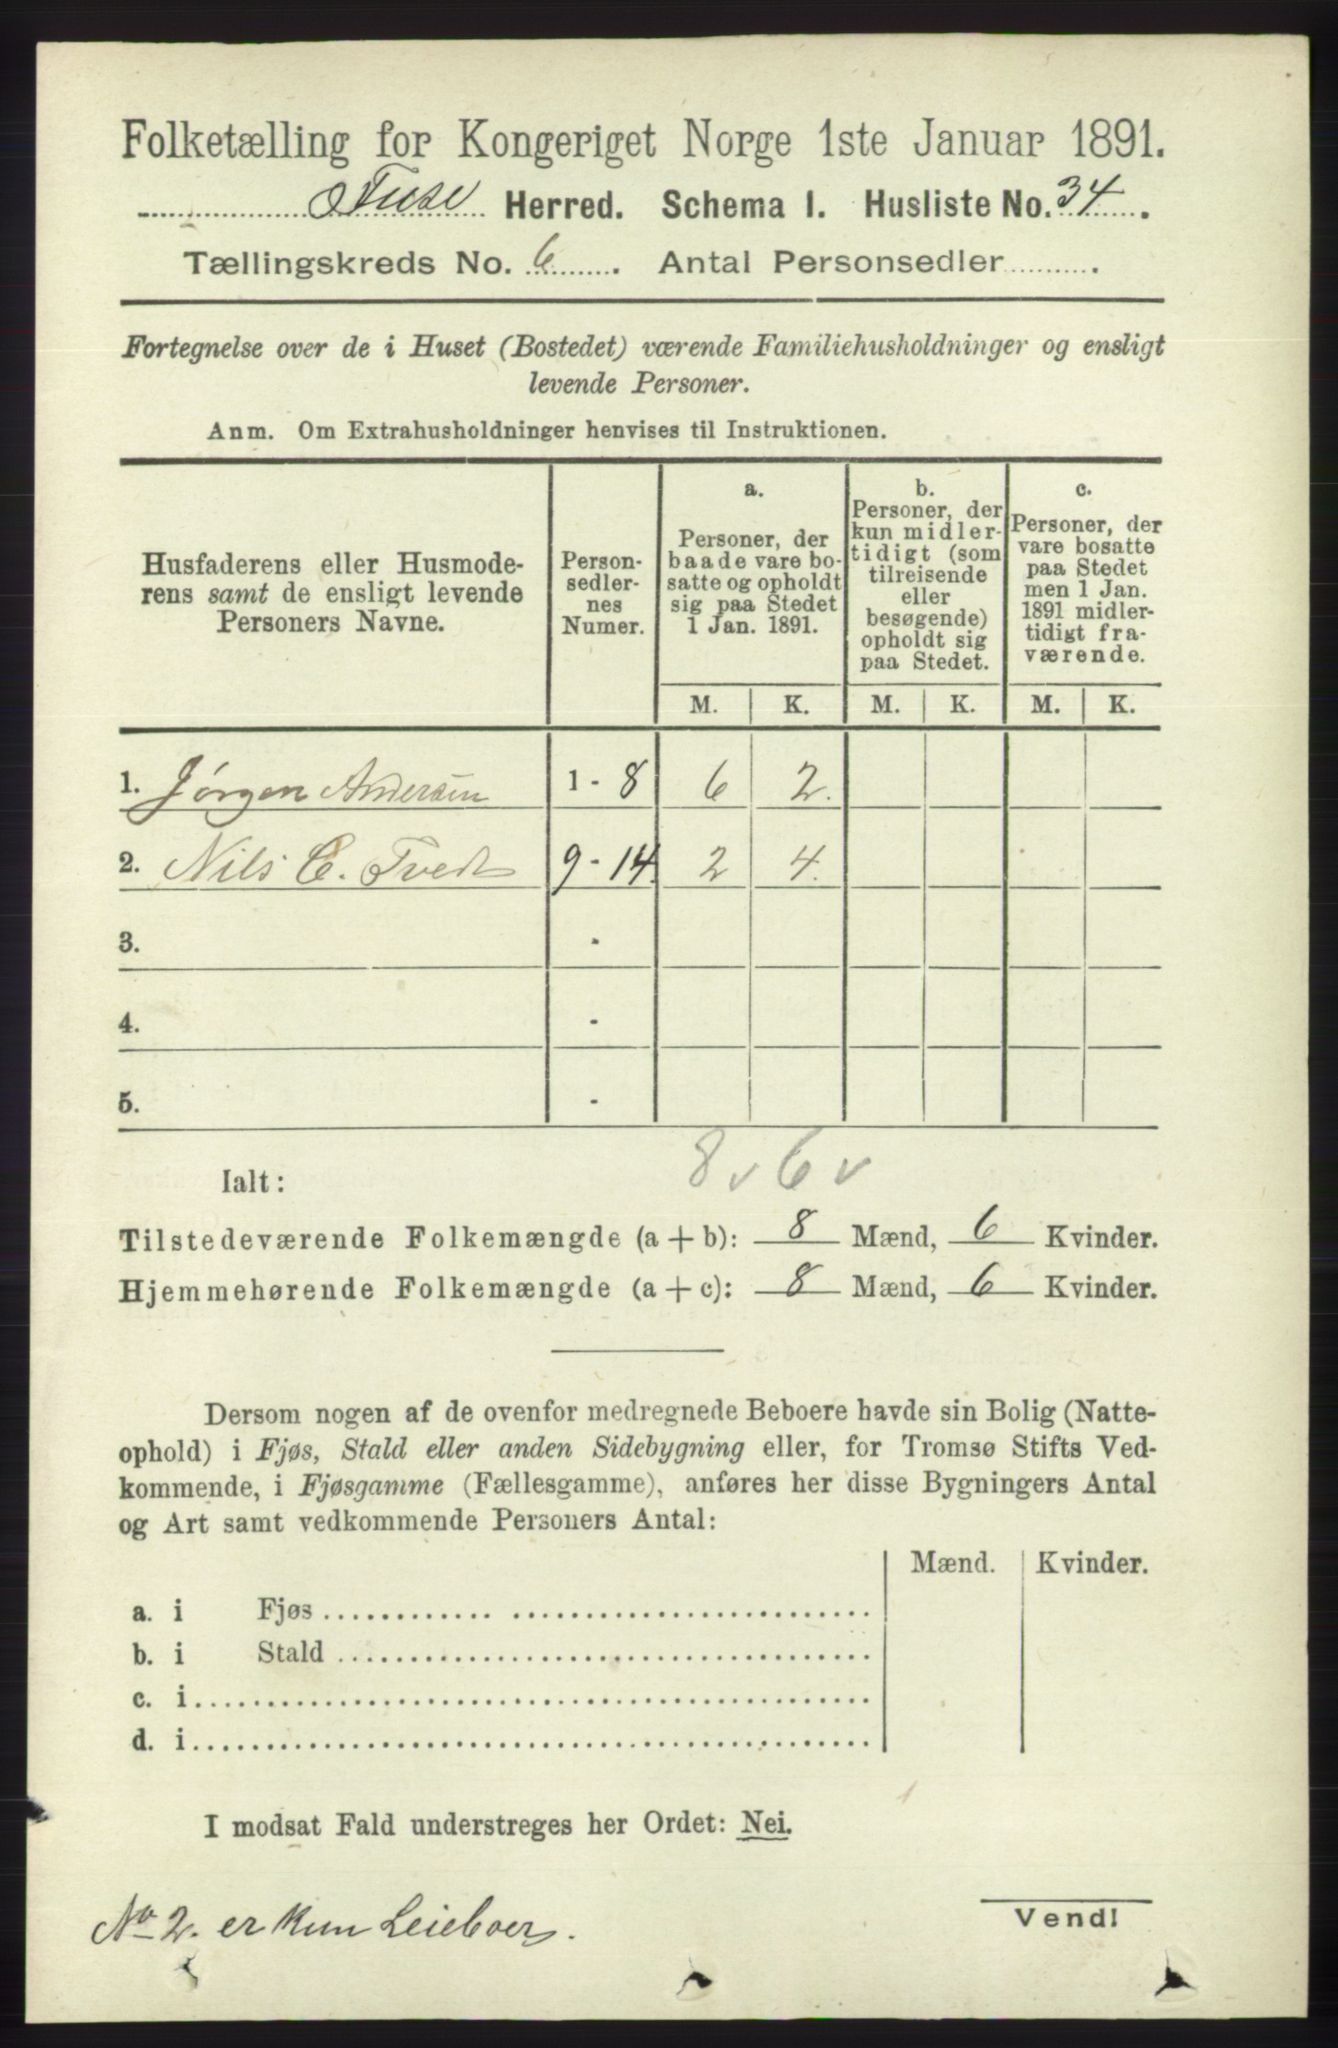 Folketælling for Kongeriget Norge 1ste Januar 1891.
Fuse Herred. Schema I. Husliste No. 34.
Tællingskreds No. 6. Antal Personsedler .
Fortegnelse over de i Huset (Bostedet) værende Familiehusholdninger og ensligt
levende Personer.
Anm. Om Extrahusholdninger henvises til Instruktionen.
Husfaderens eller Husmode-
rens samt de ensligt levende
Personers Navne.
Person-
sedler-
nes
Numer.
a.
Personer, der
baade vare bo-
satte og opholdt
sig paa Stedet
1 Jan. 1891.
b.
Personer, der
kun midler-
tidigt (som
tilreisende
eller
besøgende)
opholdt sig
paa Stedet.
c.
Personer, der
vare bosatte
paa Stedet
men 1 Jan.
1891 midler-
tidigt fra-
værende.
M. K. M. K. M. K.
1. Jørgen Andersen 1 - 8 6 2.
2. Nils C. Tvedt 9 - 14. 2 4.
3. -
4. -
5. -
8 v 6 v
Ialt:
Tilstedeværende Folkemængde (a + b): 8 Mænd, 6 Kvinder.
Hjemmehørende Folkemængde (a + c): 8 Mænd, 6 Kvinder.
Dersom nogen af de ovenfor medregnede Beboere havde sin Bolig (Natte-
ophold) i Fjøs, Stald eller anden Sidebygning eller, for Tromsø Stifts Ved-
kommende, i Fjøsgamme (Fællesgamme), anføres her disse Bygningers Antal
og Art samt vedkommende Personers Antal:
Mænd. Kvinder.
a. i Fjøs
b. i Stald
c. i
d. i
I modsat Fald understreges her Ordet: Nei.
No 2. er kun Leieboer.
Vend!